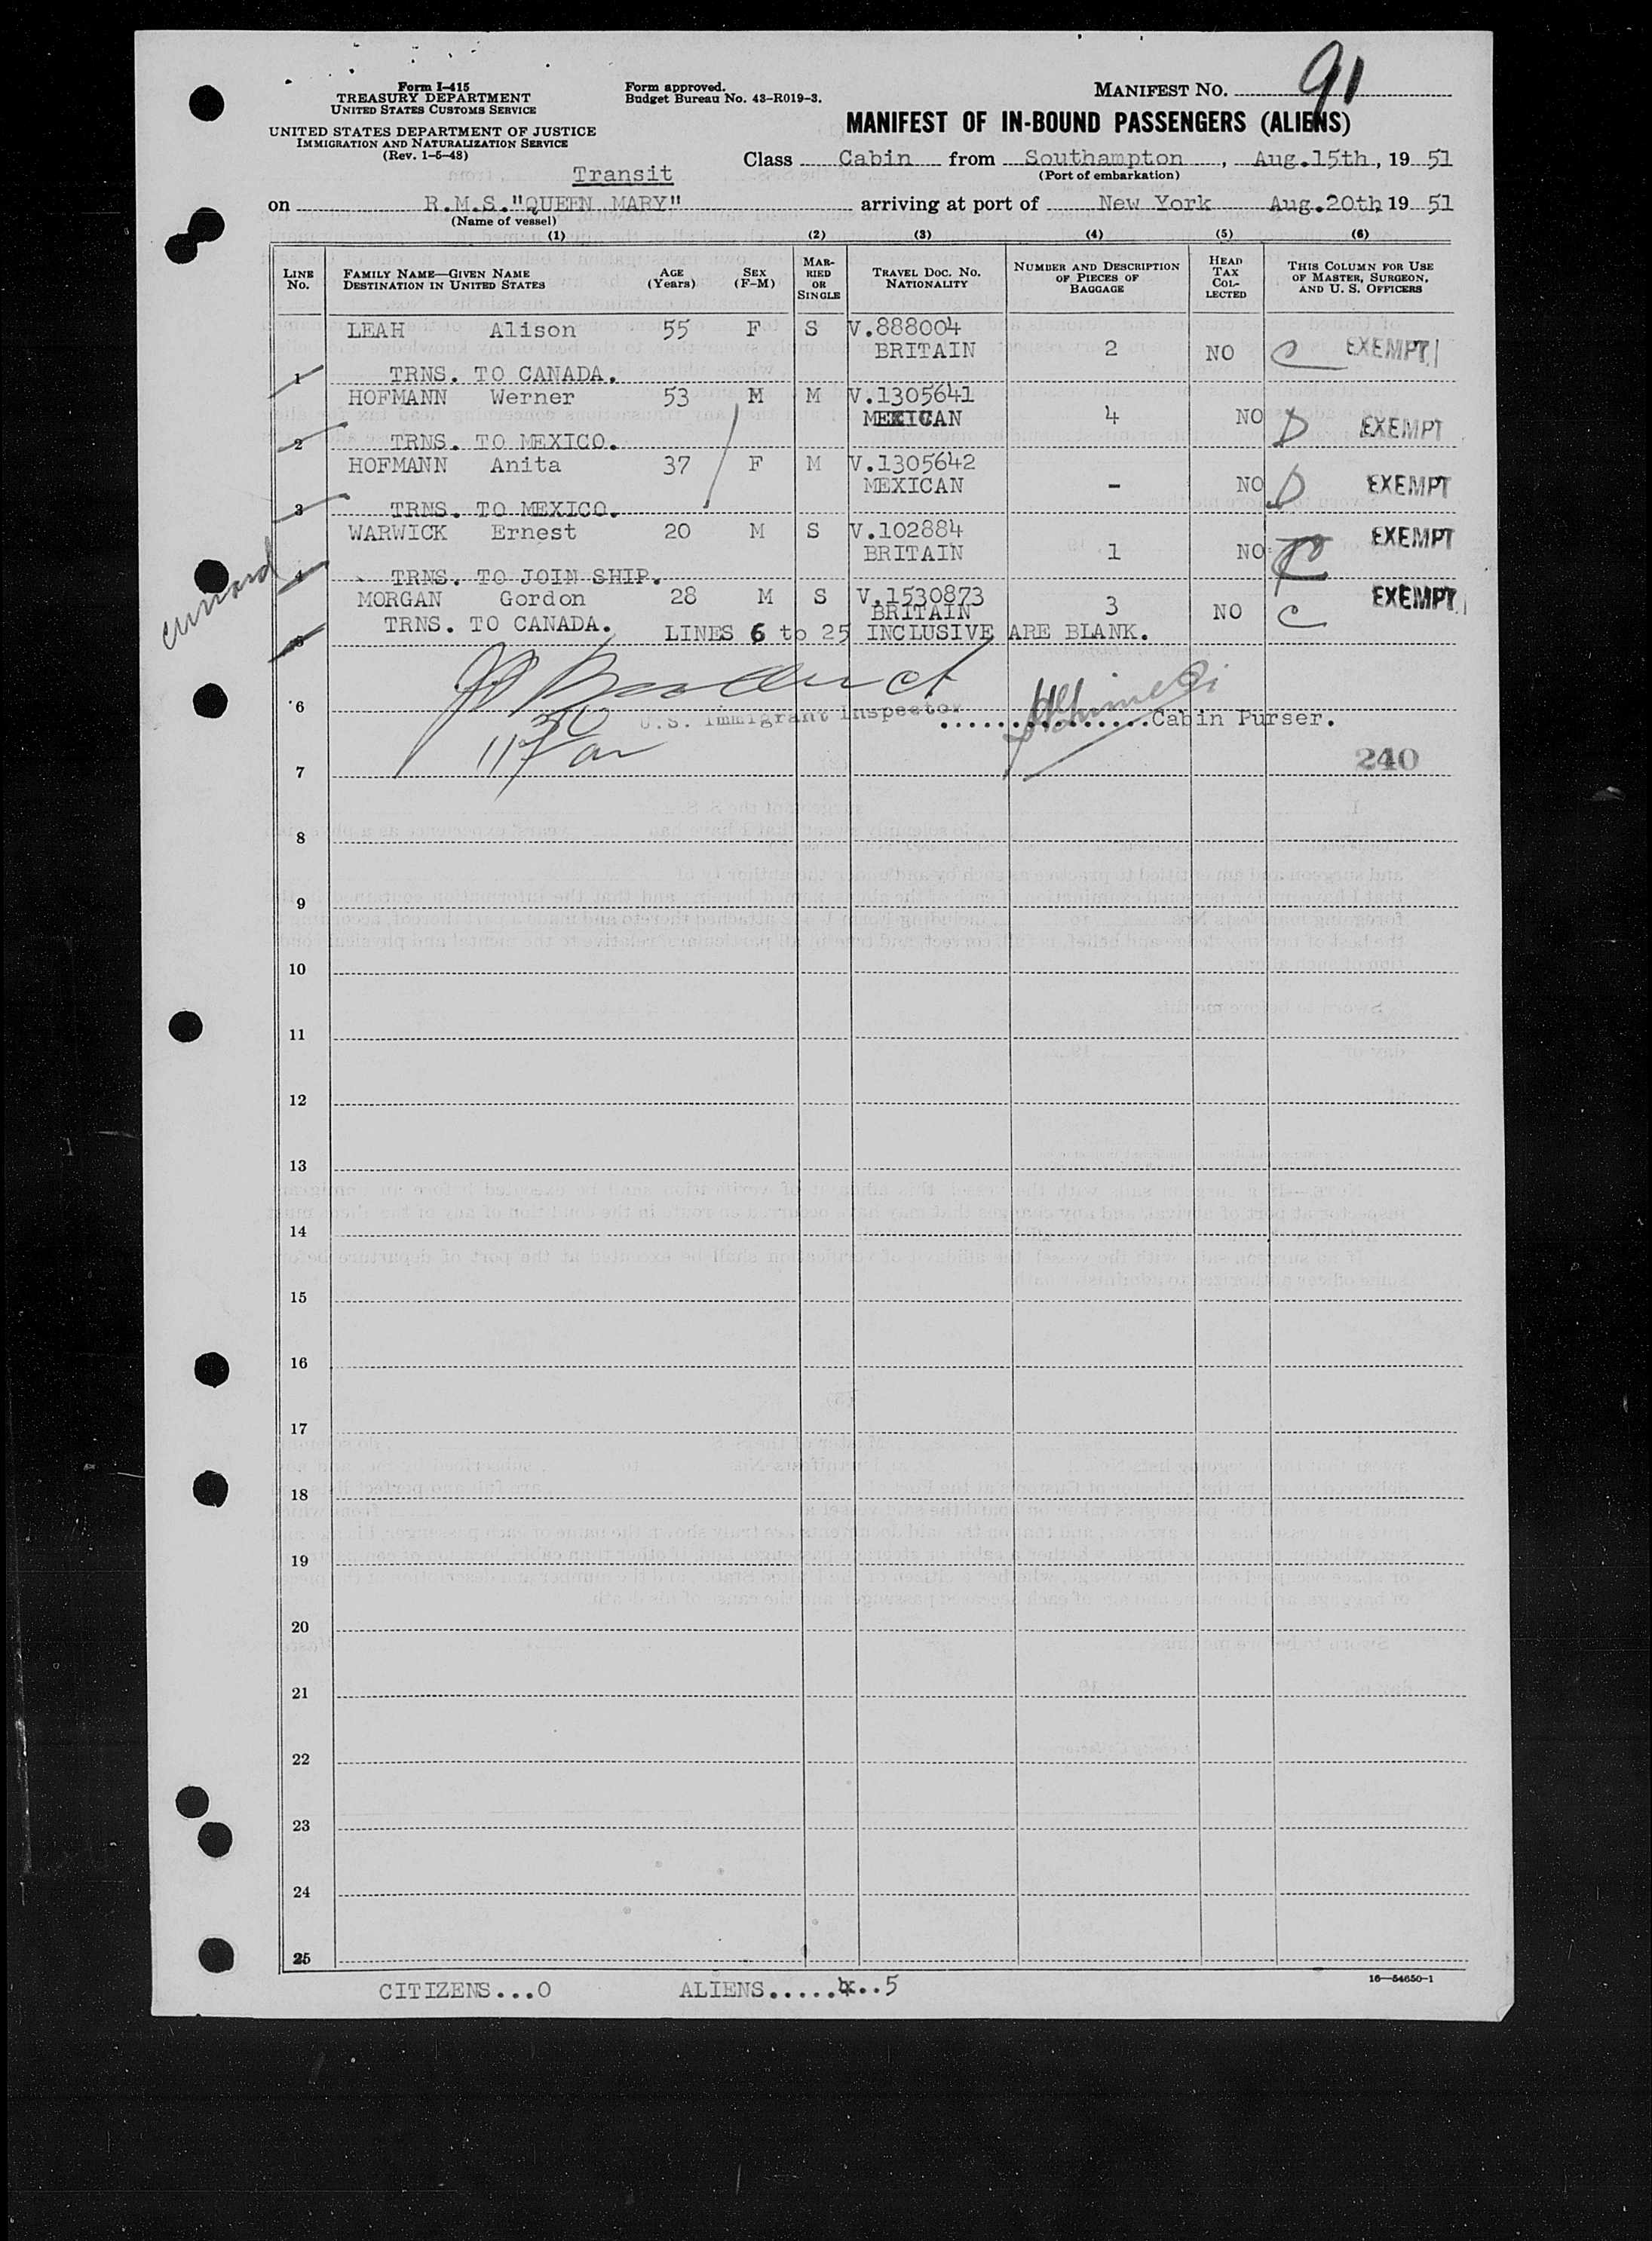 Form I-415
TREASURY DEPARTMENT
UNITED STATES CUSTOMS SERVICE
UNITED STATES DEPARTMENT OF JUSTICE
IMMIGRATION AND NATURALIZATION SERVICE
(Rev. 1-5-48)
Form approved.
Budget Bureau No. 43-R019-3.
MANIFEST NO. 91
MANIFEST OF IN-BOUND PASSENGERS (ALIENS)
Class Cabin from Southampton, Aug.15th, 19 51
(Port of embarkation)
Transit
on R.M.S."QUEEN MARY" arriving at port of New York Aug.20th, 19 51
(Name of vessel)
(1) (2) (3) (4) (5) (6)
LINE No. FAMILY NAME—GIVEN NAME DESTINATION IN UNITED STATES AGE (Years) SEX (F-M) MARRIED OR SINGLE TRAVEL DOC. NO. NATIONALITY NUMBER AND DESCRIPTION OF PIECES OF BAGGAGE HEAD TAX COLLECTED THIS COLUMN FOR USE OF MASTER, SURGEON, AND U. S. OFFICERS
LEAH Alison 55 F S V.888004
BRITAIN 2 NO C EXEMPT
1 TRNS. TO CANADA.
HOFMANN Werner 53 M M V.1305641
MEXICAN 4 NO D EXEMPT
2 TRNS. TO MEXICO.
HOFMANN Anita 37 F M V.1305642
MEXICAN - NO D EXEMPT
3 TRNS. TO MEXICO.
WARWICK Ernest 20 M S V.102884
BRITAIN 1 NO EXEMPT
cunard
4 TRNS. TO JOIN SHIP.
MORGAN Gordon 28 M S V.1530873
BRITAIN 3 NO C EXEMPT
TRNS. TO CANADA.
5 LINES 6 to 25 INCLUSIVE ARE BLANK.
6 U.S. Immigrant Inspector ...............Cabin Purser.
240
7
8
9
10
11
12
13
14
15
16
17
18
19
20
21
22
23
24
25
CITIZENS...0 ALIENS........5
16—54650-1